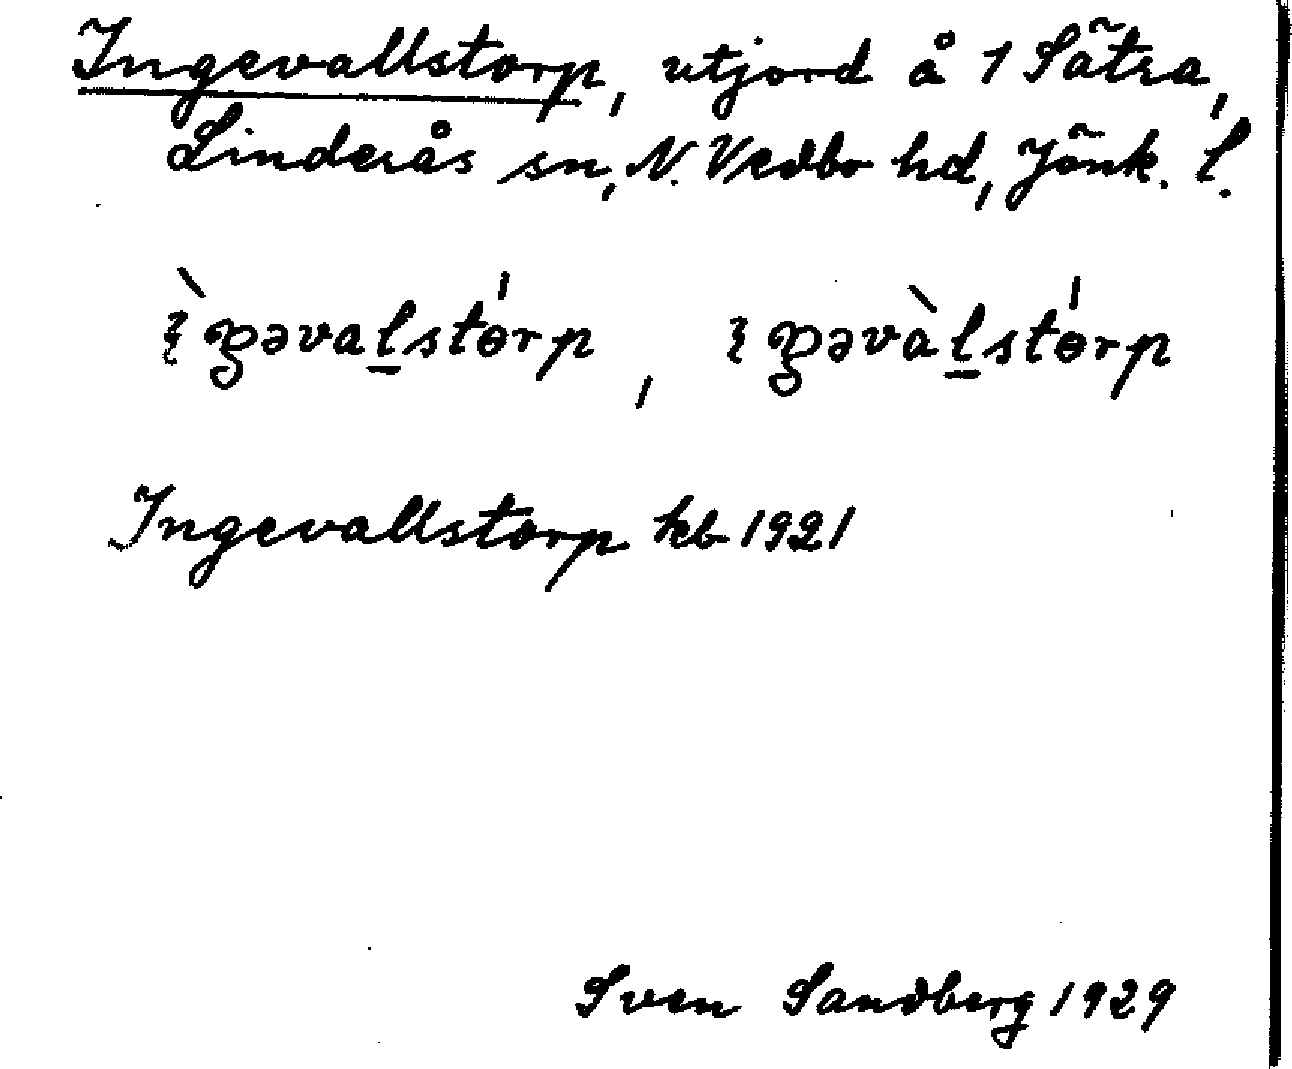 Ingevallstorp, utjord å 1 Sätra,
Linderås sn, N. Vedbo hd, Jönk. l.
Ingevallstorp kb 1921
Sven Sandberg 1929